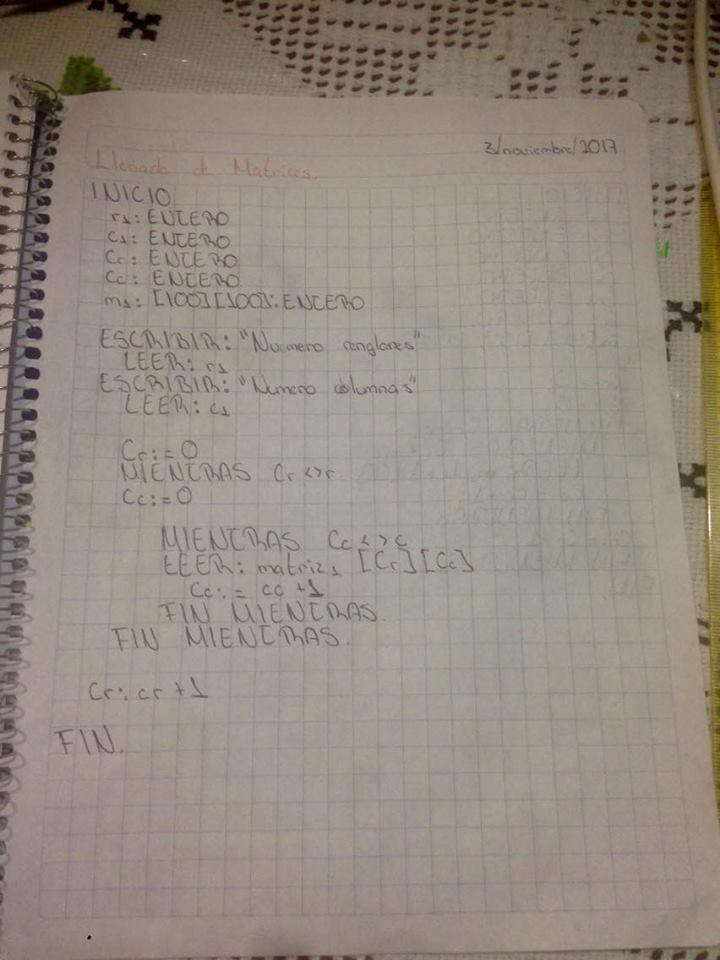 3/noviembre/2017
Llenado de Matrices.
INICIO
r1: ENTERO
c1: ENTERO
Cr: ENTERO
Cc: ENTERO
m1: [100][100]: ENTERO
ESCRIBIR: "Numero renglones"
LEER: r1
ESCRIBIR: "Numero columnas"
LEER: c1
Cr:=0
MIENTRAS Cr <>r
Cc:=0
MIENTRAS Cc <>c
LEER: matriz1 [Cr][Cc]
Cc:= cc +1
FIN MIENTRAS.
FIN MIENTRAS.
Cr: cr +1
FIN.